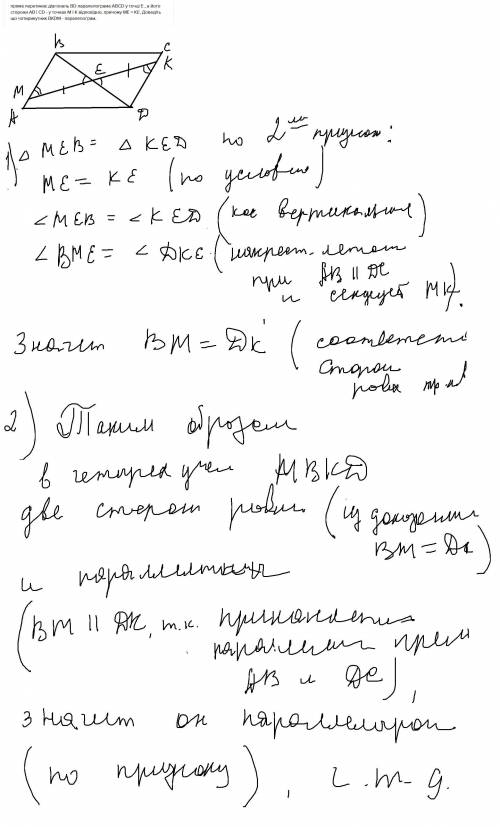 пряма перетинає діагональ BD паралелограма ABCD у точці E , а його
сторони AB і CD - у точках M і K відповідно, причому ME = KE. Доведіть
що чотирикутник BKDM - паралелограм.
B C
E K
M
A D
1) Δ MEB = Δ KED по 2 признак:
ME = KE (по условию)
∠MEB = ∠KED (как вертикальные)
∠BME = ∠DKE (накрест. лежат
при AB || DC
и секущей MK).
Значит BM = DK (соответств
сторон
равн тр-ков
2) Таким образом
в четырехугол MBKD
две сторон равны (из доказанн
BM = DK)
и параллельны
(BM || DK, т.к. принадлежа
параллель прям
AB и DC),
значит он параллелогром
(по признаку), ч.т.д.